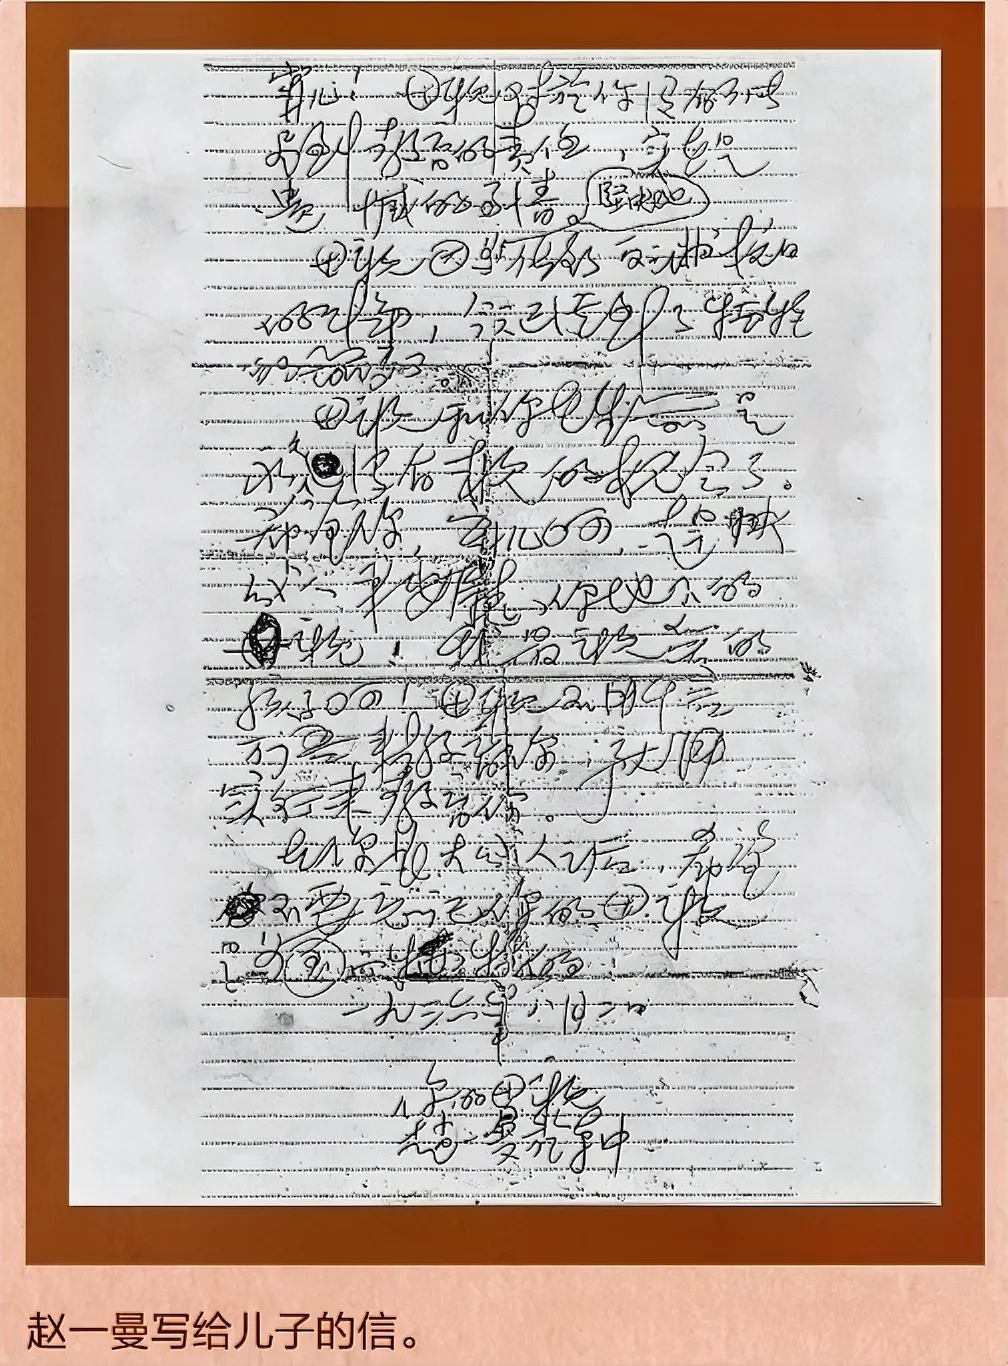 宁儿!母亲对于你没有能尽
到教育的责任,实在是
遗憾的事情。坚决地
母亲因为做了反满抗日
的斗争,今天已经到了牺牲
的前夕了
母亲和你在生前是
永久没有再见的机会了。
希望你,宁儿啊,赶快
成人,来安慰你地下的
母亲!我最亲爱的
孩子啊!母亲不用千言
万语来教育你,就用
实行来教育你。
在你长大成人之后,希望
不要忘记你的母亲
是为国而牺牲的
一九三六年八月二日
你的母亲
赵一曼于车中
赵一曼写给儿子的信。